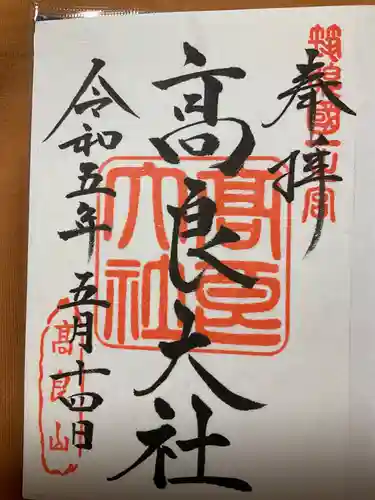 奉拝
筑後國一之宮
髙良大社
髙良大社
令和五年五月十四日
髙良山